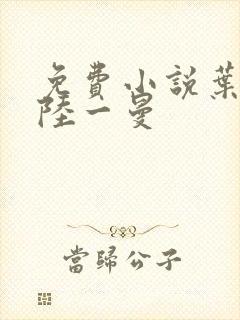 免費小說葉
陸一曼
當歸公子